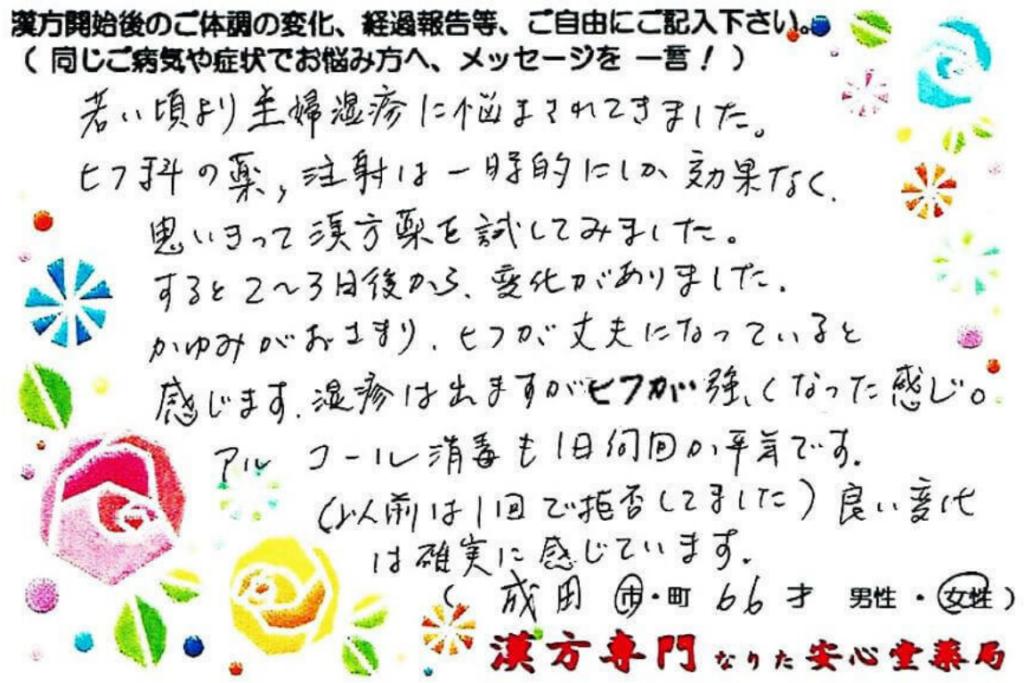 漢方開始後のご体調の変化、経過報告等、ご自由にご記入下さい。
(同じご病気や症状でお悩み方へ、メッセージを 一言!)
若い頃より主婦湿疹に悩まされてきました。
ヒフ科の薬,注射は一時的にしか効果なく、
思いきって漢方薬を試してみました。
すると2〜3日後から、変化がありました。
かゆみがおさまり、ヒフが丈夫になっていると
感じます。湿疹は出ますがヒフが強くなった感じ。
アルコール消毒も1日何回か平気です。
(以前は1回で拒否してました)良い変化
は確実に感じています。
(成田 市・町 66才 男性・女性)
漢方専門 なりた 安心堂薬局